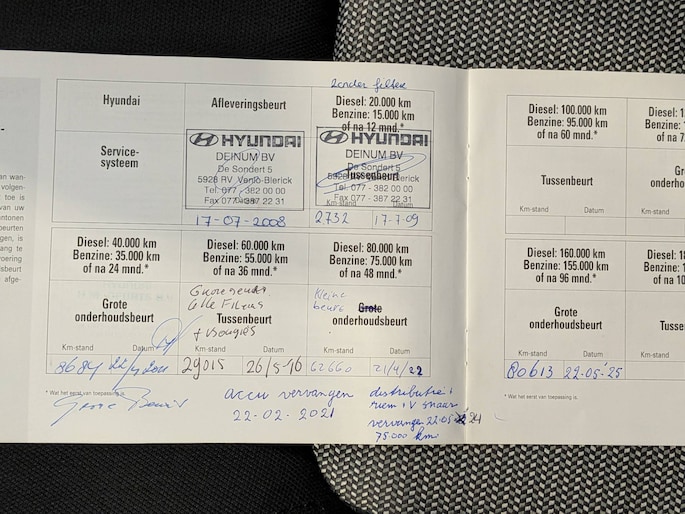 zonder filter
Hyundai
Afleveringsbeurt
Diesel: 20.000 km
Benzine: 15.000 km
of na 12 mnd.*
Service-
systeem
HYUNDAI
DEINUM BV
De Sondert 5
5928 RV Venlo-Blerick
Tel. 077 - 382 00 00
Fax 077 - 387 22 31
17-07-2008
HYUNDAI
DEINUM BV
De Sondert 5
5928 RV Venlo-Blerick
Tussenbeurt
Tel. 077 - 382 00 00
Fax 077 - 387 22 31
Km-stand Datum
2732 17-7-09
Diesel: 40.000 km
Benzine: 35.000 km
of na 24 mnd.*
Grote
onderhoudsbeurt
Km-stand Datum
8684
Diesel: 60.000 km
Benzine: 55.000 km
of na 36 mnd.*
alle Filters
+ Bougies
Km-stand Datum
29015 26/5-16
Diesel: 80.000 km
Benzine: 75.000 km
of na 48 mnd.*
kleine
beurt
Grote
onderhoudsbeurt
Km-stand Datum
62660 21/4/22
* Wat het eerst van toepassing is.
Grote Beurt
accu vervangen
22-02-2021
distributie +
riem + V snaar
vervangen 22-05 24
75.000 km
Diesel: 100.000 km
Benzine: 95.000 km
of na 60 mnd.*
Tussenbeurt
Km-stand Datum
Diesel: 160.000 km
Benzine: 155.000 km
of na 96 mnd.*
Grote
onderhoudsbeurt
Km-stand Datum
80613 22-05-25
* Wat het eerst van toepassing is.